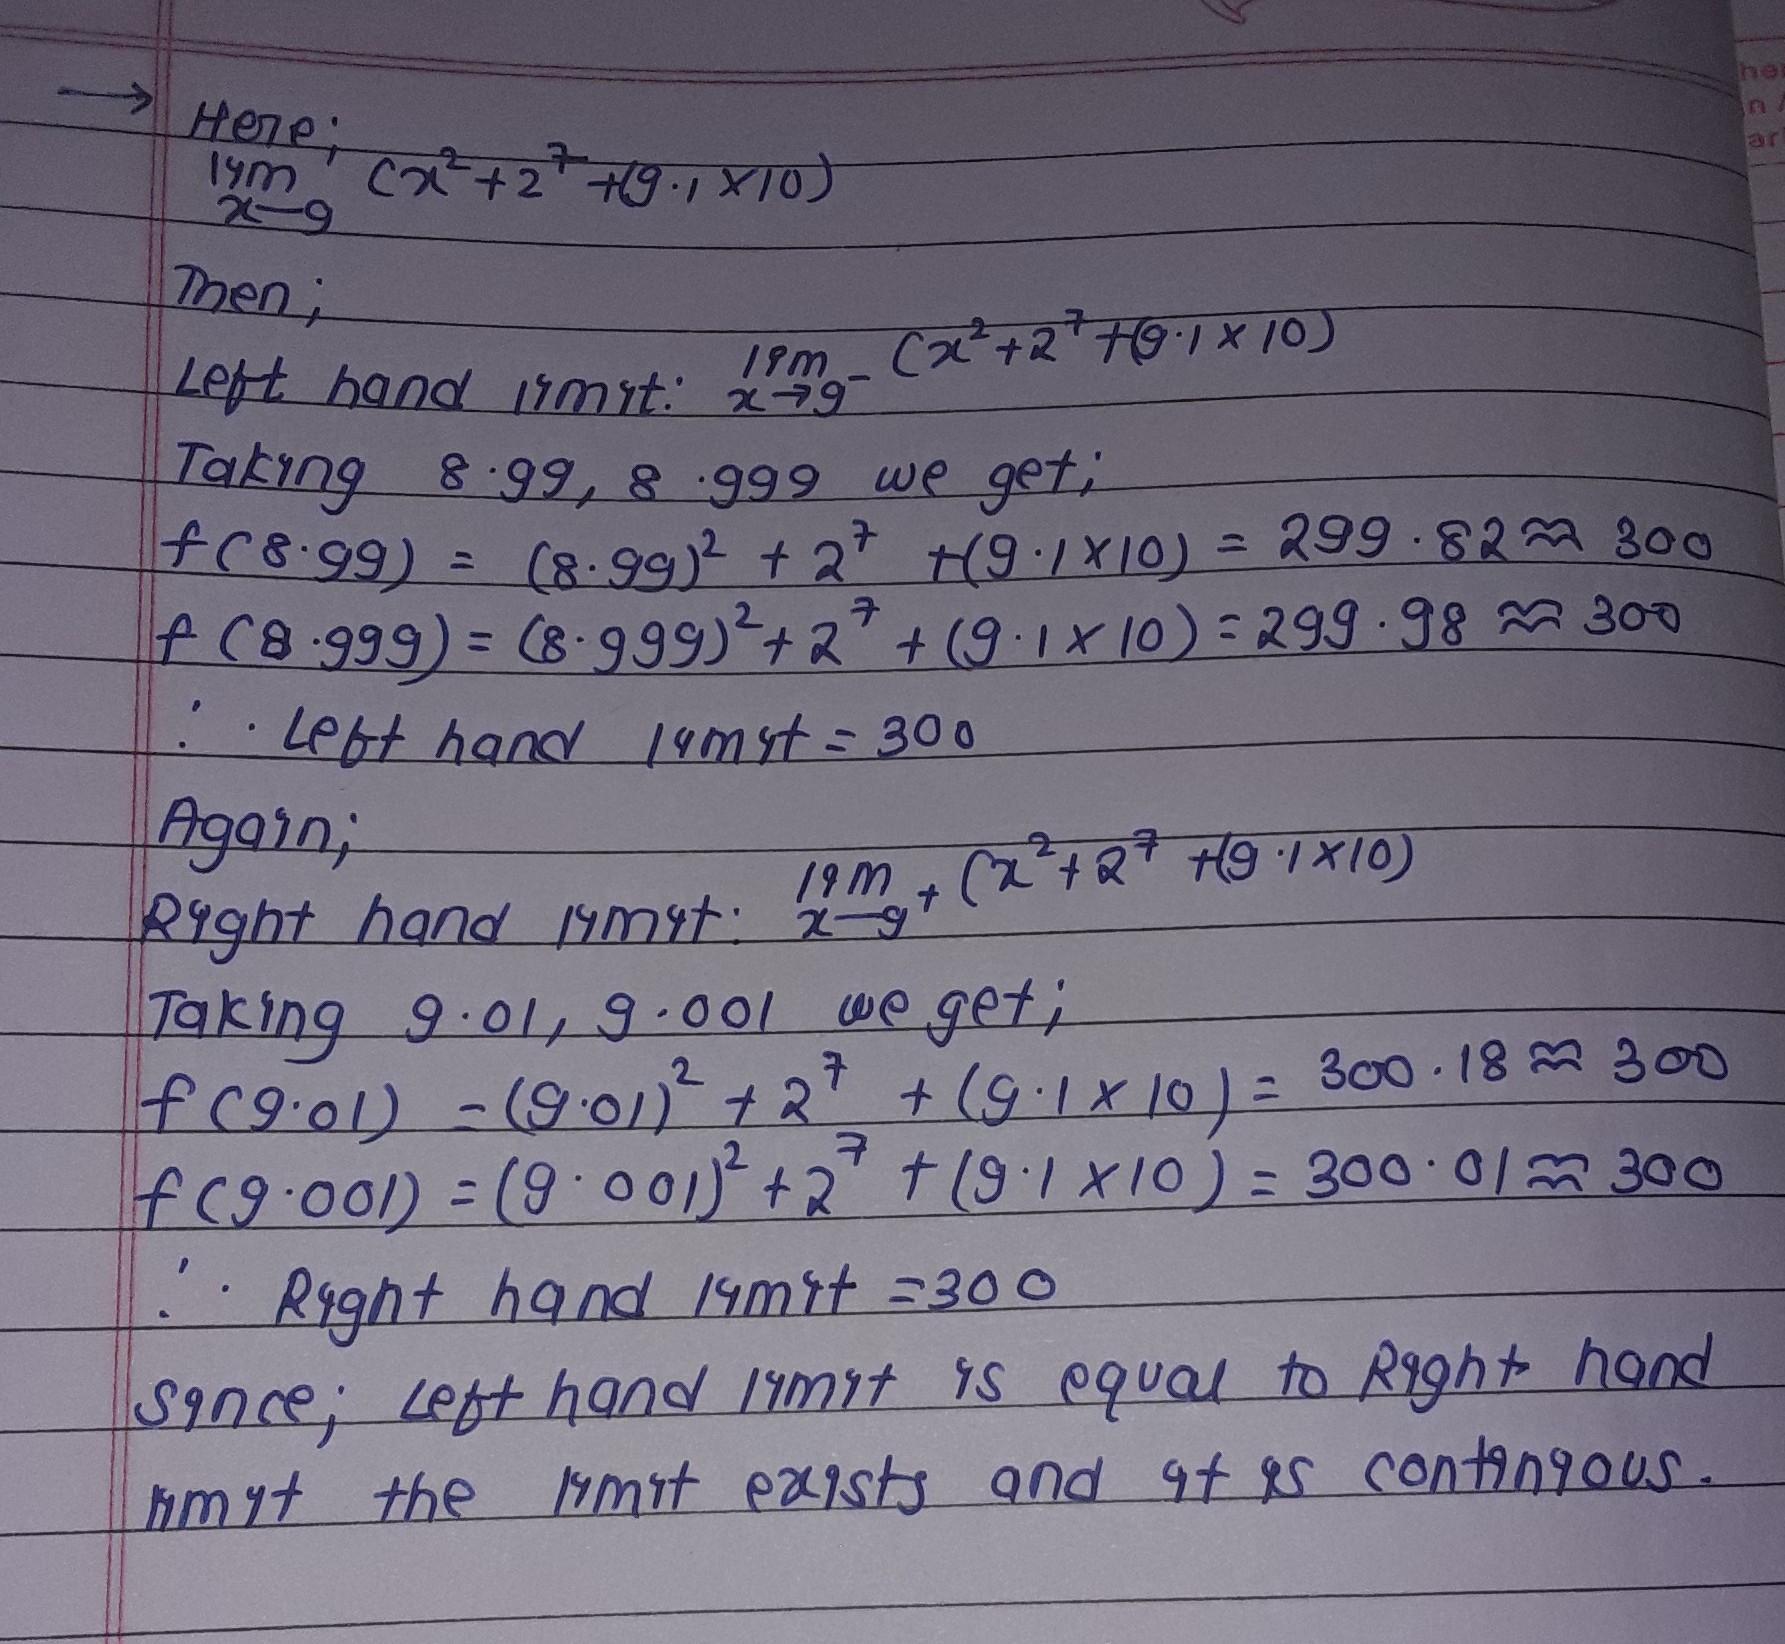 → Here;
lim x→9 (x² + 2⁷ + (9.1 × 10)
Then;
Left hand limit: lim x→9⁻ (x² + 2⁷ + (9.1 × 10)
Taking 8.99, 8.999 we get;
f(8.99) = (8.99)² + 2⁷ + (9.1 × 10) = 299.82 ≈ 300
f(8.999) = (8.999)² + 2⁷ + (9.1 × 10) = 299.98 ≈ 300
∴ Left hand limit = 300
Again;
Right hand limit: lim x→9⁺ (x² + 2⁷ + (9.1 × 10)
Taking 9.01, 9.001 we get;
f(9.01) = (9.01)² + 2⁷ + (9.1 × 10) = 300.18 ≈ 300
f(9.001) = (9.001)² + 2⁷ + (9.1 × 10) = 300.01 ≈ 300
∴ Right hand limit = 300
Since; Left hand limit is equal to Right hand
limit the limit exists and it is continious.